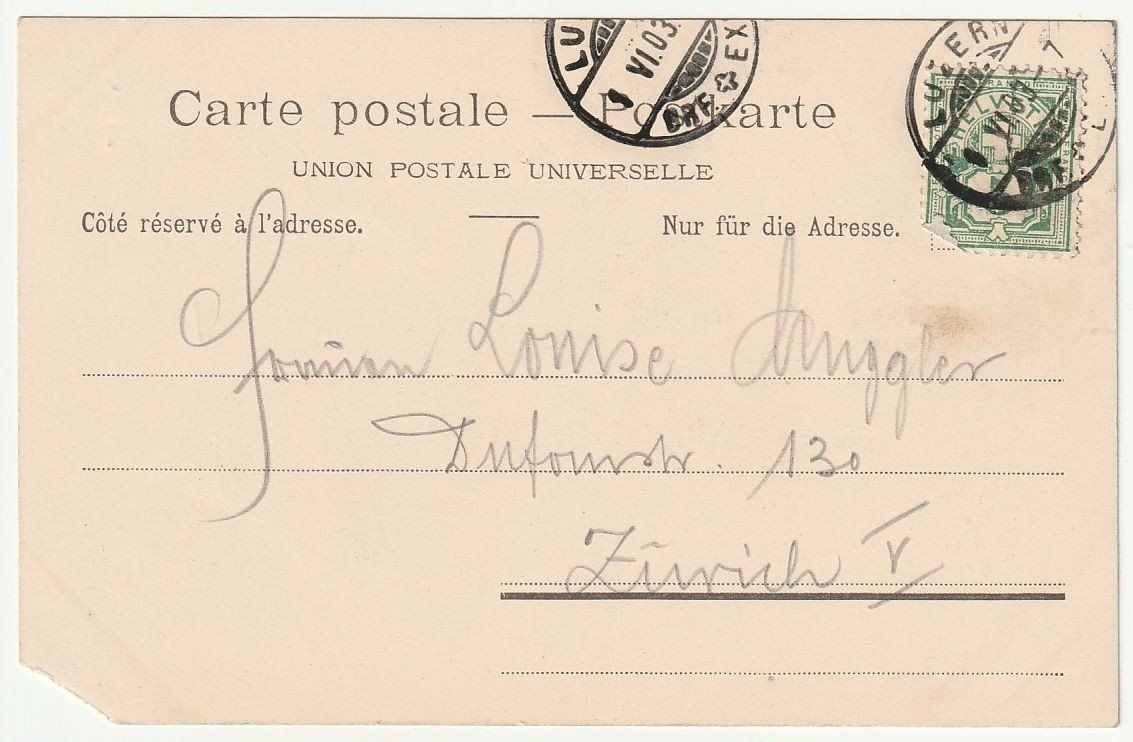 LUZERN
VI.03
BRF. EX
LUZERN
VI.03
BRF.
FRANCO
HELVETIA
Carte postale — Postkarte
UNION POSTALE UNIVERSELLE
Côté réservé à l'adresse.
Nur für die Adresse.
Frauen Louise Muggler
Dufourstr. 130
Zürich V